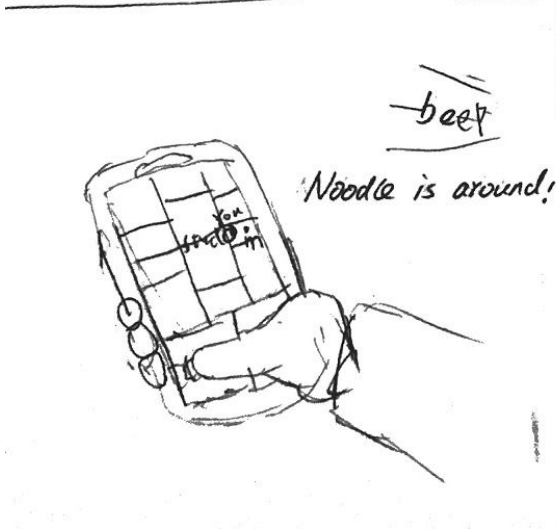 beep
Noodle is around!
You